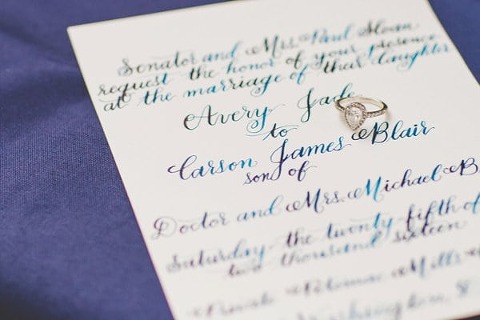 Senator and Mrs. Paul Sloan
request the honor of your presence
at the marriage of their daughter
Avery Jade
to
Carson James Blair
son of
Doctor and Mrs. Michael B
Saturday the twenty fifth of
two thousand sixteen
Mills